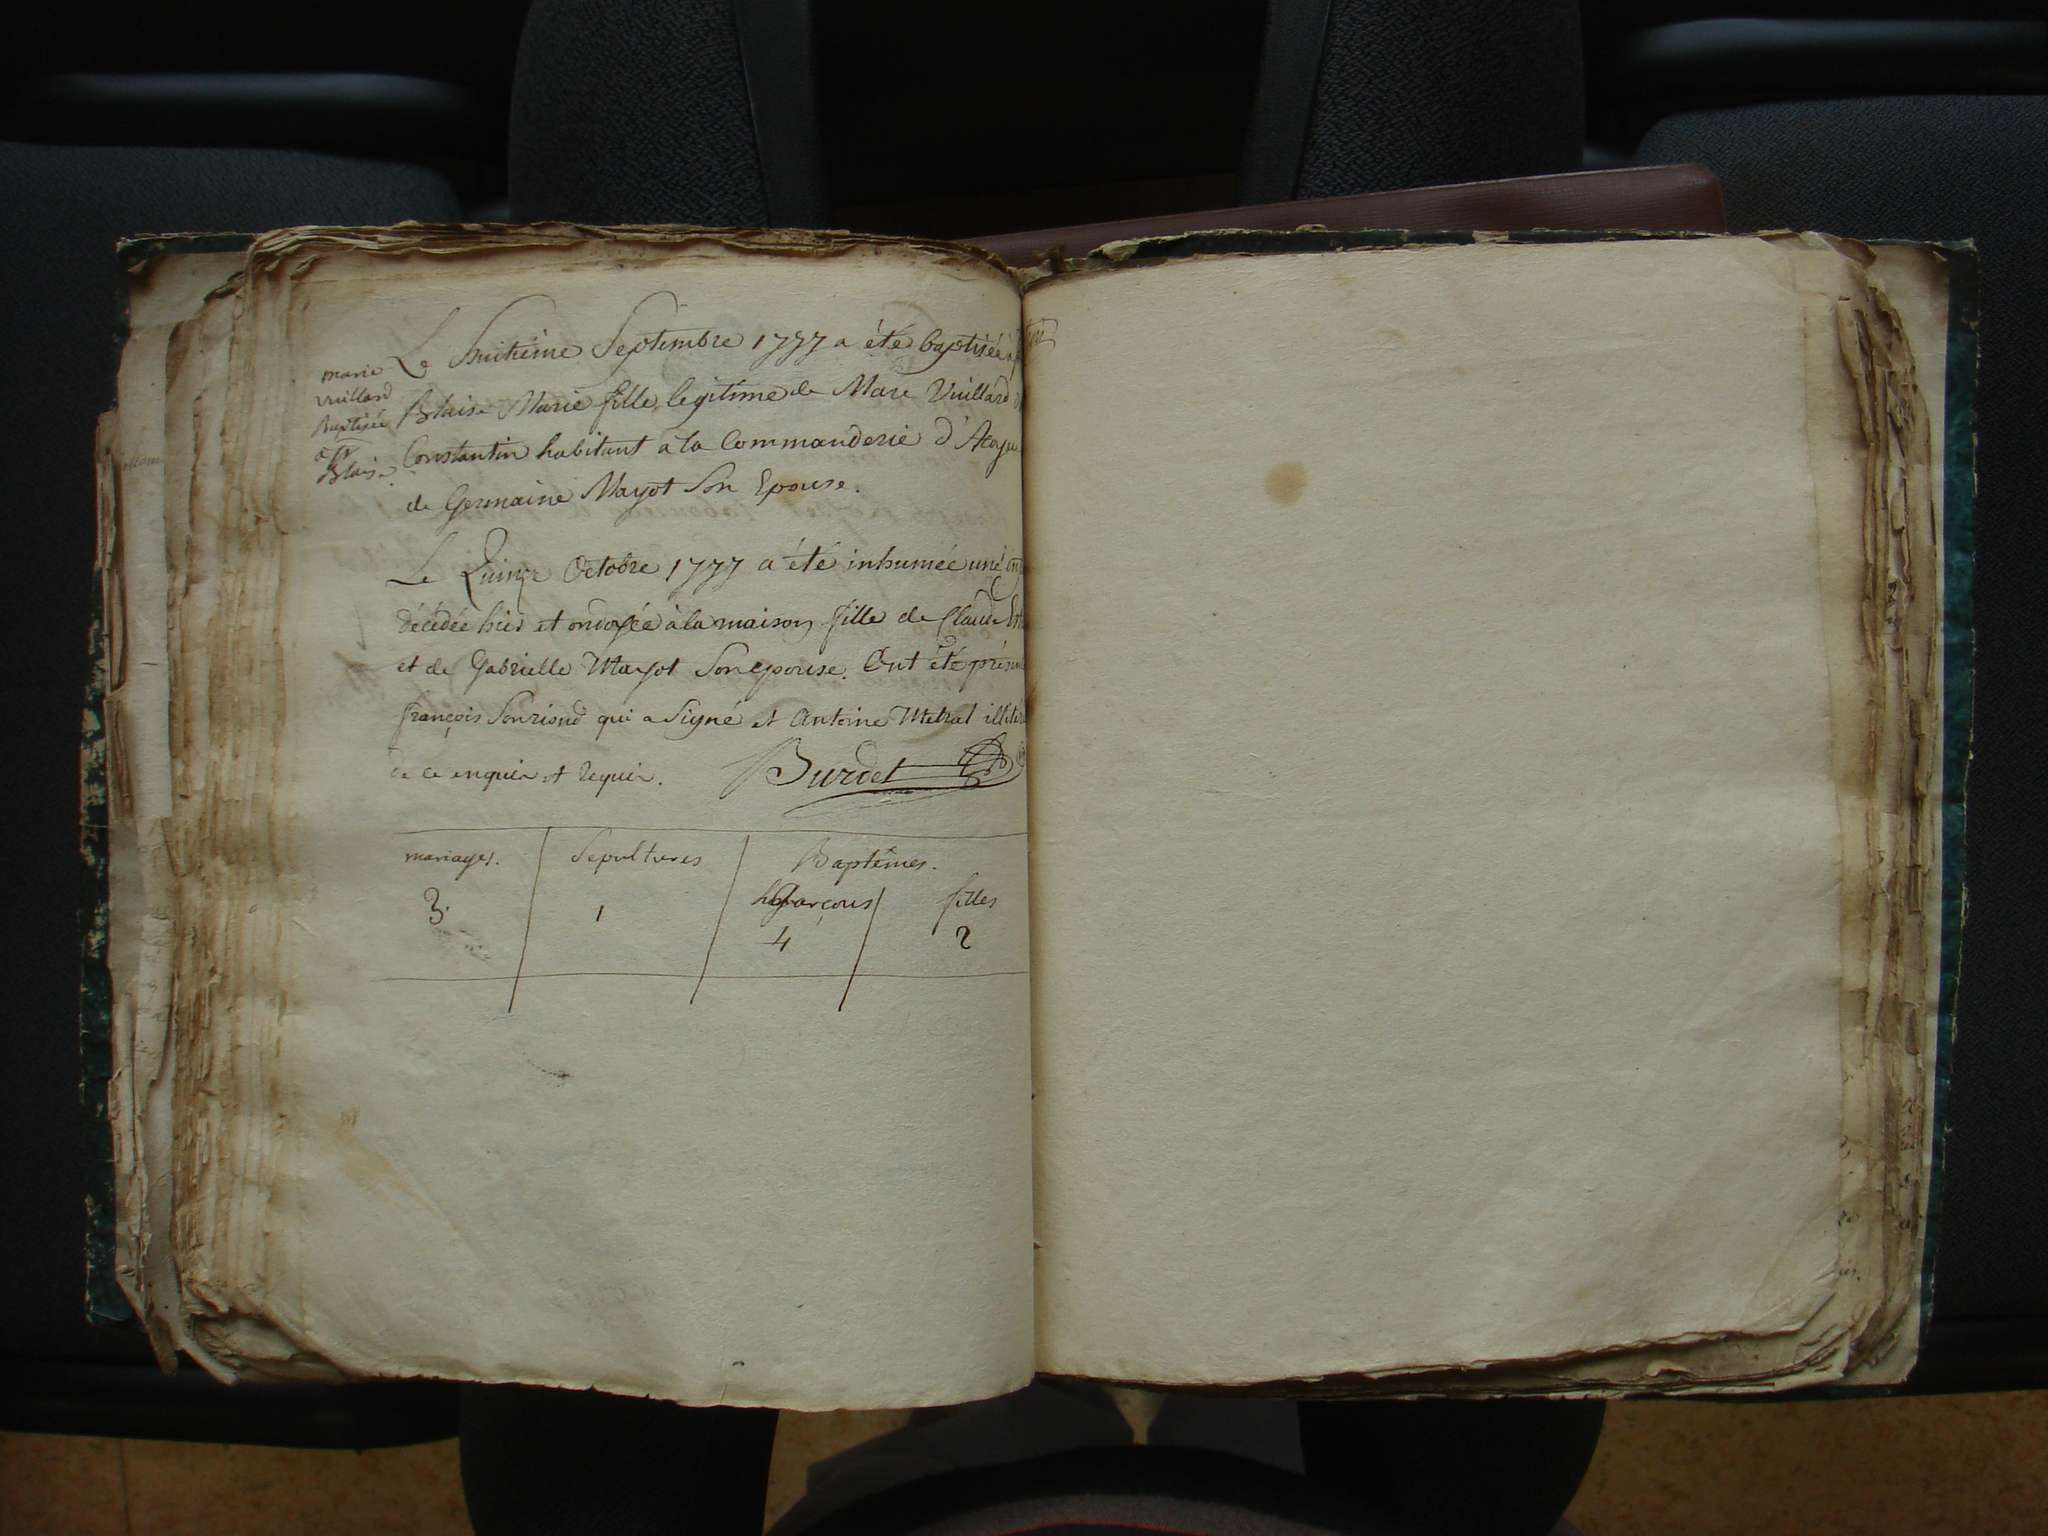 marie
vuillard
Baptisée
a St
Blaise.
Le huitième Septembre 1777 a été baptisée à
Blaise Marie fille légitime de Marc Vuillard
Constantin habitant a la Commanderie d'Acoyeu
de Germaine Mayot Son Epouse.
Le Quinze Octobre 1777 a été inhumée une
décédée hier et ondoyée à la maison fille de Claude
et de Gabrielle Mayot Son epouse. Ont été présen
françois Sonriond qui a Signé et Antoine Metral illiter
de ce enquis et requis. Burdet
mariages. Sepultures Baptêmes.
garçons filles
3. 1 4 2